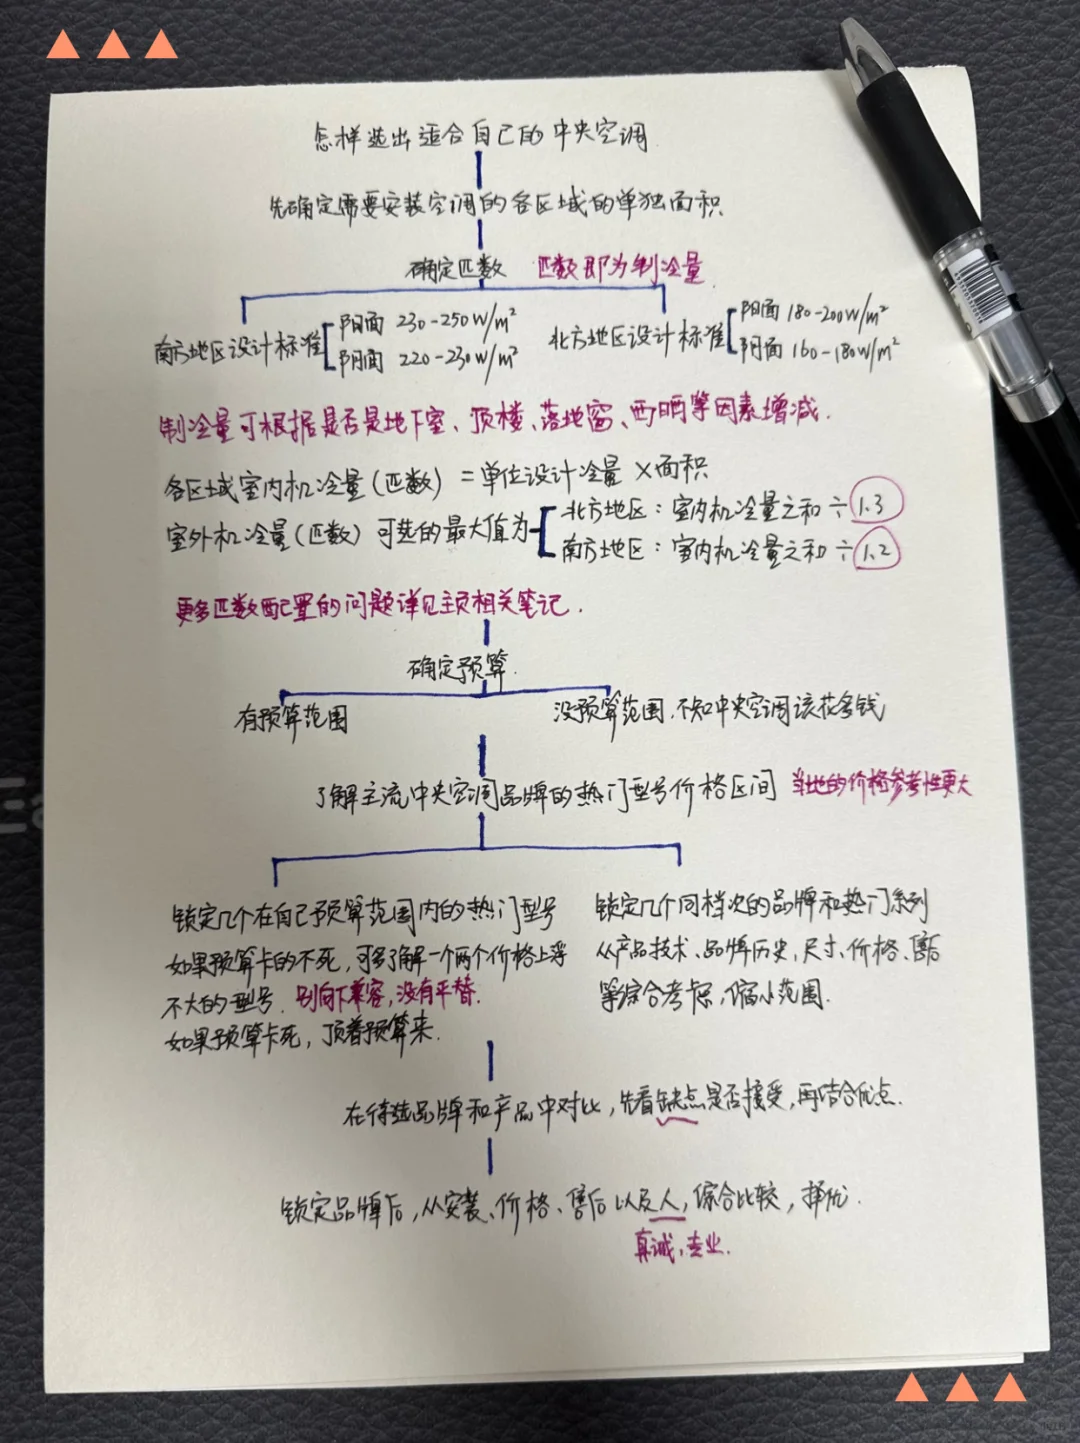 怎样选出适合自己的中央空调
先确定需要安装空调的各区域的单独面积
确定匹数 匹数即为制冷量
南方地区设计标准
阳面 230-250W/m²
阴面 220-230W/m²
北方地区设计标准
阳面 180-200W/m²
阴面 160-180W/m²
制冷量可根据是否是地下室、顶楼、落地窗、西晒等因素增减.
各区域室内机冷量(匹数) = 单位设计冷量 × 面积
室外机冷量(匹数) 可选的最大值为
北方地区: 室内机冷量之和 ÷ 1.3
南方地区: 室内机冷量之和 ÷ 1.2
更多匹数配置的问题详见主页相关笔记.
确定预算.
有预算范围
没预算范围.不知中央空调该花多钱
了解主流中央空调品牌的热门型号价格区间 当地的价格参考性更大
锁定几个在自己预算范围内的热门型号
如果预算卡的不死,可多了解一个两个价格上浮
不大的型号. 别向下兼容,没有平替.
如果预算卡死,顶着预算来.
锁定几个同档次的品牌和热门系列
从产品技术、品牌历史,尺寸、价格、售后
等综合考虑,缩小范围.
在待选品牌和产品中对比,先看缺点是否接受,再结合优点.
锁定品牌后,从安装、价格、售后以及人,综合比较,择优.
真诚,专业.